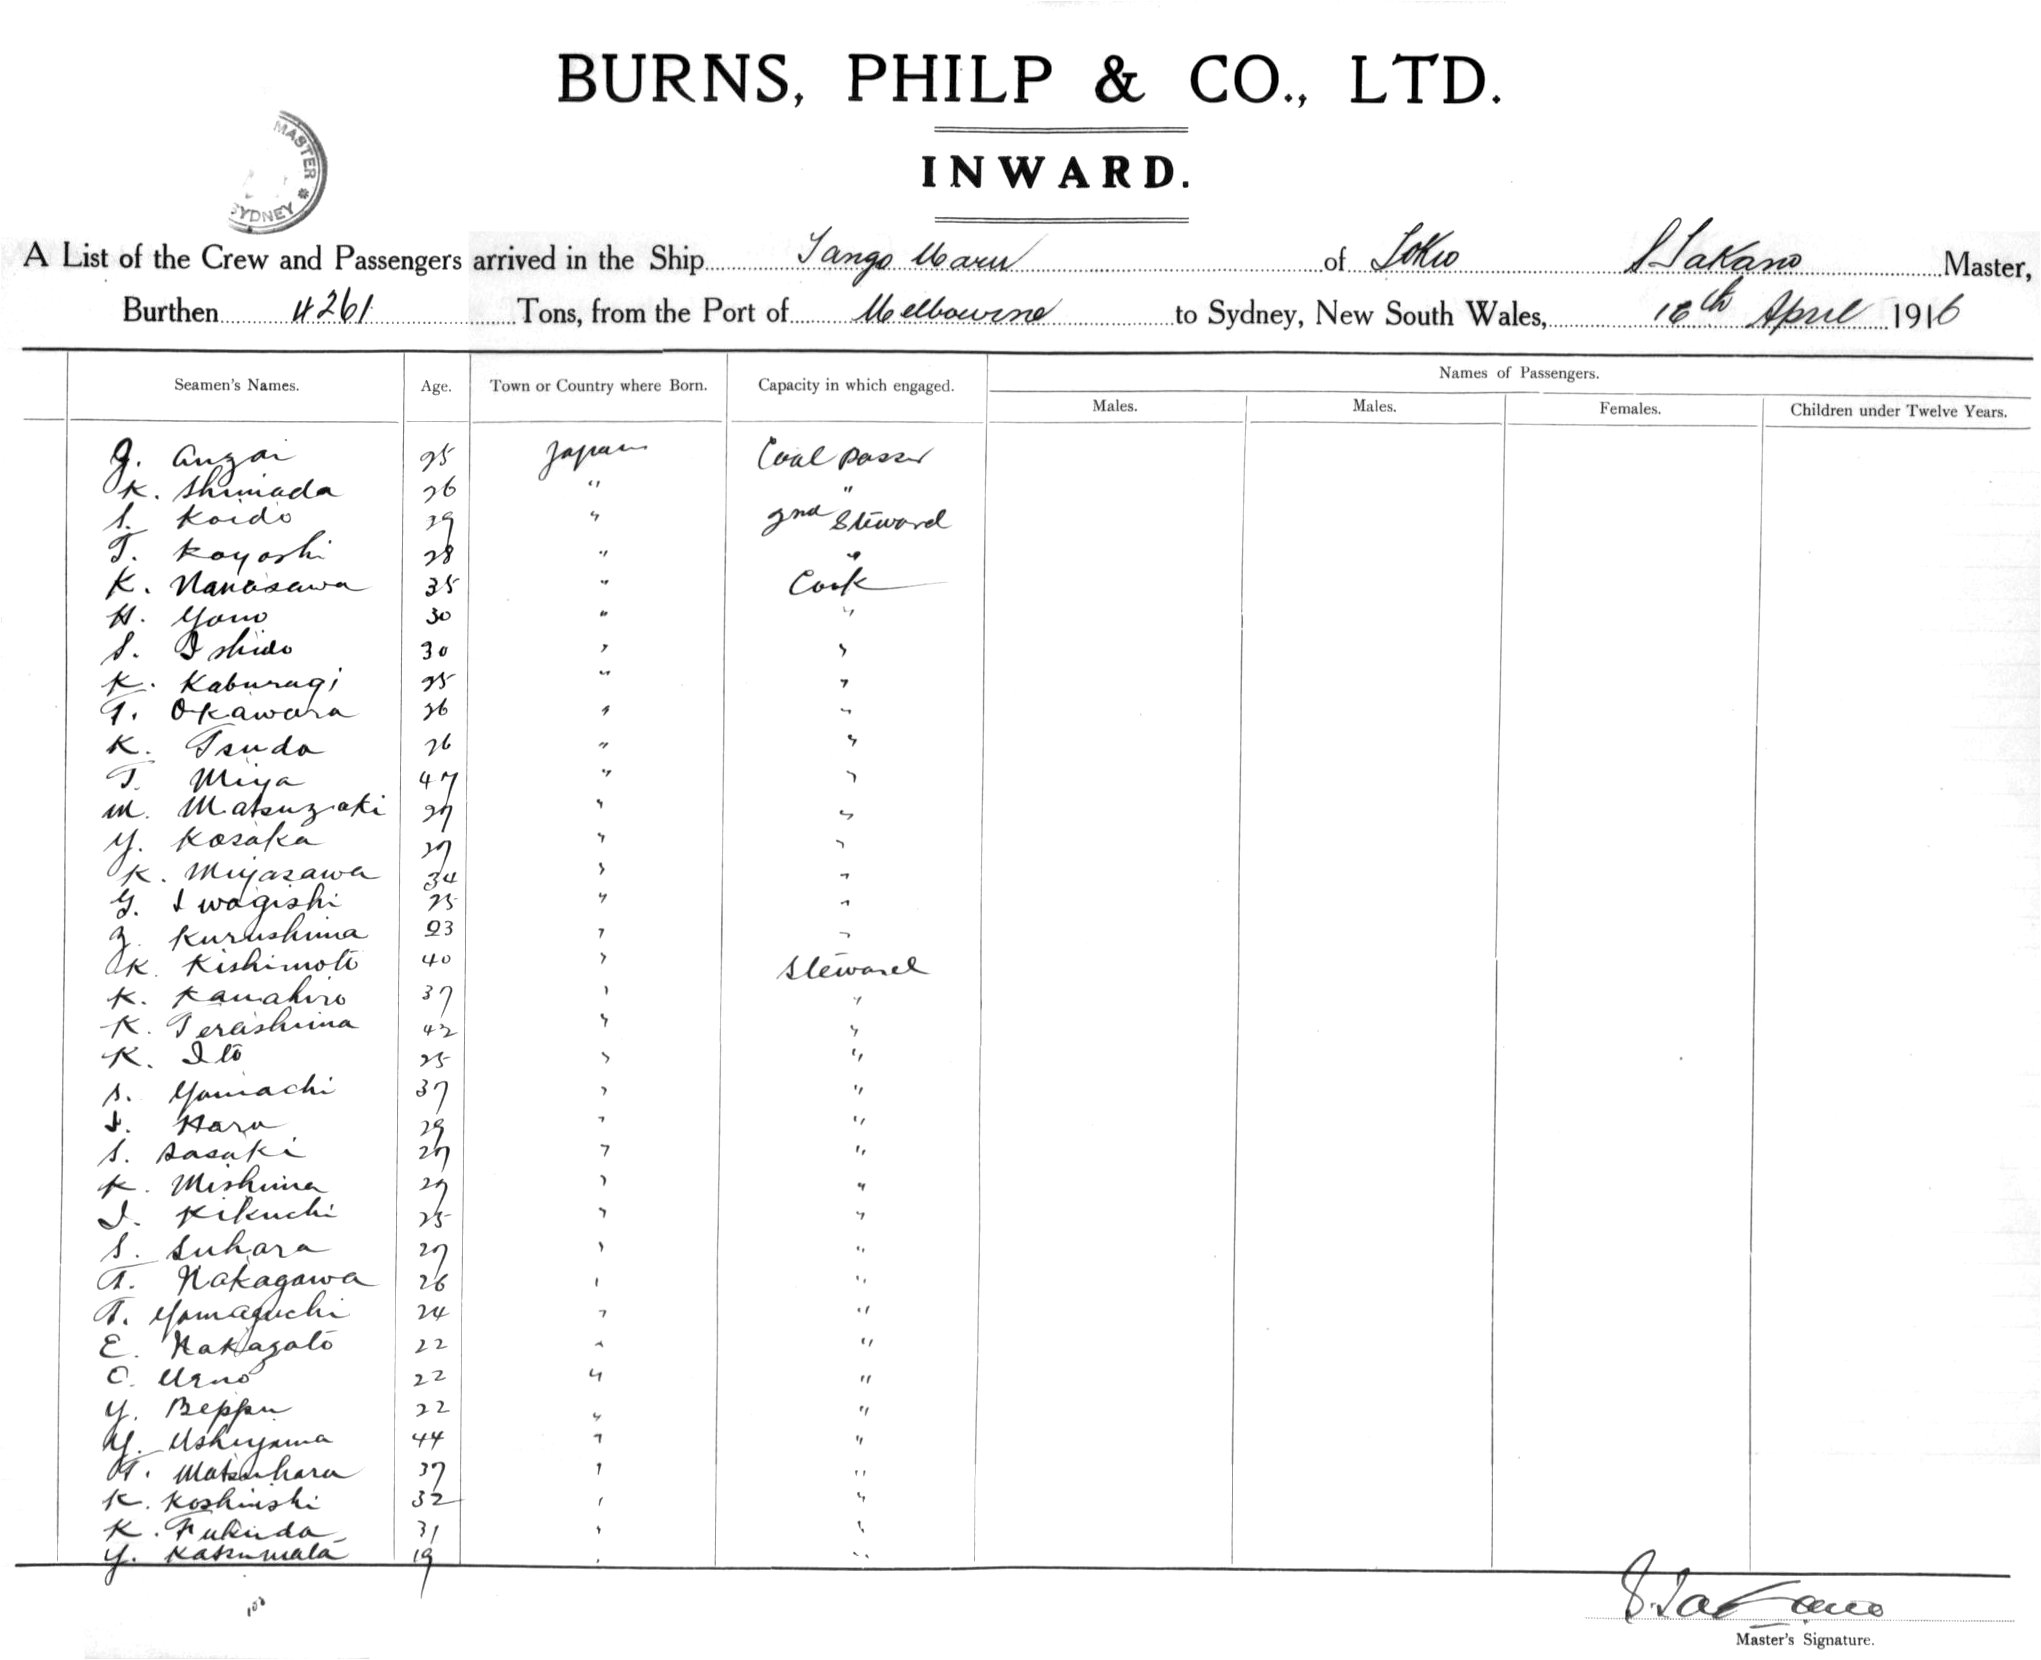 BURNS, PHILP & CO., LTD.
INWARD.
MASTER * SYDNEY
A List of the Crew and Passengers arrived in the Ship Tango Maru of Tokio S Takano Master,
Burthen 4261 Tons, from the Port of Melbourne to Sydney, New South Wales, 16th April 1916
Names of Passengers.
Seamen's Names. Age. Town or Country where Born. Capacity in which engaged. Males. Males. Females. Children under Twelve Years.
J. Anzai 25 Japan Coal passer
K. Shimada 26 " "
S. Koido 29 " 2nd Steward
T. Koyoshi 28 " "
K. Nanasawa 35 " Cook
H. Yano 30 " "
S. Ishido 30 " "
K. Kaburagi 25 " "
T. Okawara 26 " "
K. Tsuda 26 " "
T. Miya 47 " "
M. Matsuzaki 27 " "
Y. Kosaka 27 " "
K. Miyazawa 34 " "
G. Iwagishi 25 " "
Z. Kurushima 23 " "
K. Kishimoto 40 " Steward
K. Kamahiro 37 " "
K. Terashima 42 " "
K. Ito 25 " "
S. Yamachi 37 " "
I. Hara 29 " "
S. Sasaki 27 " "
K. Mishima 27 " "
I. Kikuchi 25 " "
S. Suhara 27 " "
T. Nakagawa 26 " "
T. Yamaguchi 24 " "
E. Nakazato 22 " "
O. Ueno 22 " "
Y. Beppu 22 " "
Y. Ushiyama 44 " "
T. Matsuhara 37 " "
K. Koshiishi 32 " "
K. Fukuda 31 " "
Y. Katsumata 19 " "
S. Takano
Master's Signature.